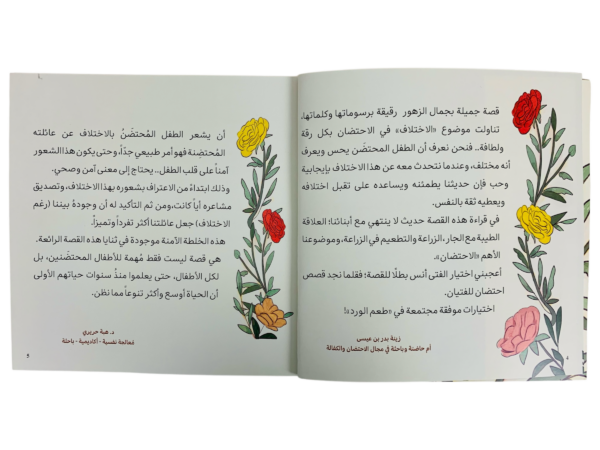 قصة جميلة بجمال الزهور رقيقة برسوماتها وكلماتها،
تناولت موضوع «الاختلاف» في الاحتضان بكل رقة
ولطافة.. فنحن نعرف أن الطفل المحتضَن يحس ويعرف
أنه مختلف، وعندما نتحدث معه عن هذا الاختلاف بإيجابية
وحب فإن حديثنا يطمئنه ويساعده على تقبل اختلافه
ويعطيه ثقة بالنفس.
في قراءة هذه القصة حديث لا ينتهي مع أبنائنا؛ العلاقة
الطيبة مع الجار، الزراعة والتطعيم في الزراعة، وموضوعنا
الأهم «الاحتضان».
أعجبني اختيار الفتى أنس بطلًا للقصة؛ فقلما نجد قصص
احتضان للفتيان.
اختيارات موفقة مجتمعة في «طعم الورد»!
زينة بدر بن عيسى
أم حاضنة وباحثة في مجال الاحتضان والكفالة
أن يشعر الطفل المُحتضَنُ بالاختلاف عن عائلته
المُحتضِنة فهو أمر طبيعي جدًا، وحتى يكون هذا الشعور
آمناً على قلب الطفل.. يحتاج إلى معنى آمن وصحي.
وذلك ابتداءً من الاعتراف بشعوره بهذا الاختلاف، وتصديق
مشاعره أياً كانت، ومن ثم التأكيد له أن وجودهُ بيننا (رغم
الاختلاف) جعل عائلتنا أكثر تفرداً وتميزاً.
هذه الخلطة الآمنة موجودة في ثنايا هذه القصة الرائعة.
هي قصة ليست فقط مُهمة للأطفال المحتضَنين، بل
لكل الأطفال، حتى يعلموا منذُ سنوات حياتهم الأولى
أن الحياة أوسع وأكثر تنوعاً مما نظن.
د. هبة حريري
مُعالجة نفسية - أكاديمية - باحثة